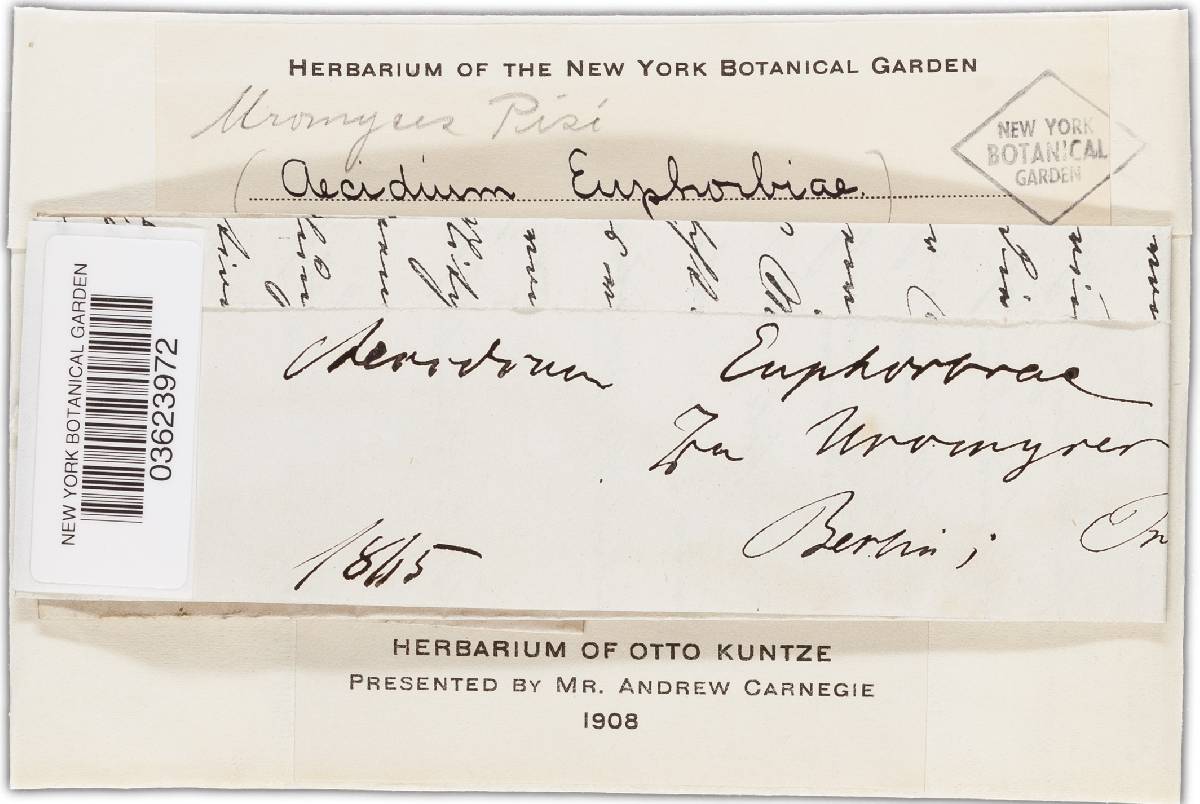 HERBARIUM OF THE NEW YORK BOTANICAL GARDEN
Uromyces Pisi
(Aecidium Euphorbiae.)
NEW YORK
BOTANICAL
GARDEN
NEW YORK BOTANICAL GARDEN
03623972
Aecidium Euphorbiae
Zu Uromyces
Berlin;
1865
HERBARIUM OF OTTO KUNTZE
PRESENTED BY MR. ANDREW CARNEGIE
1908